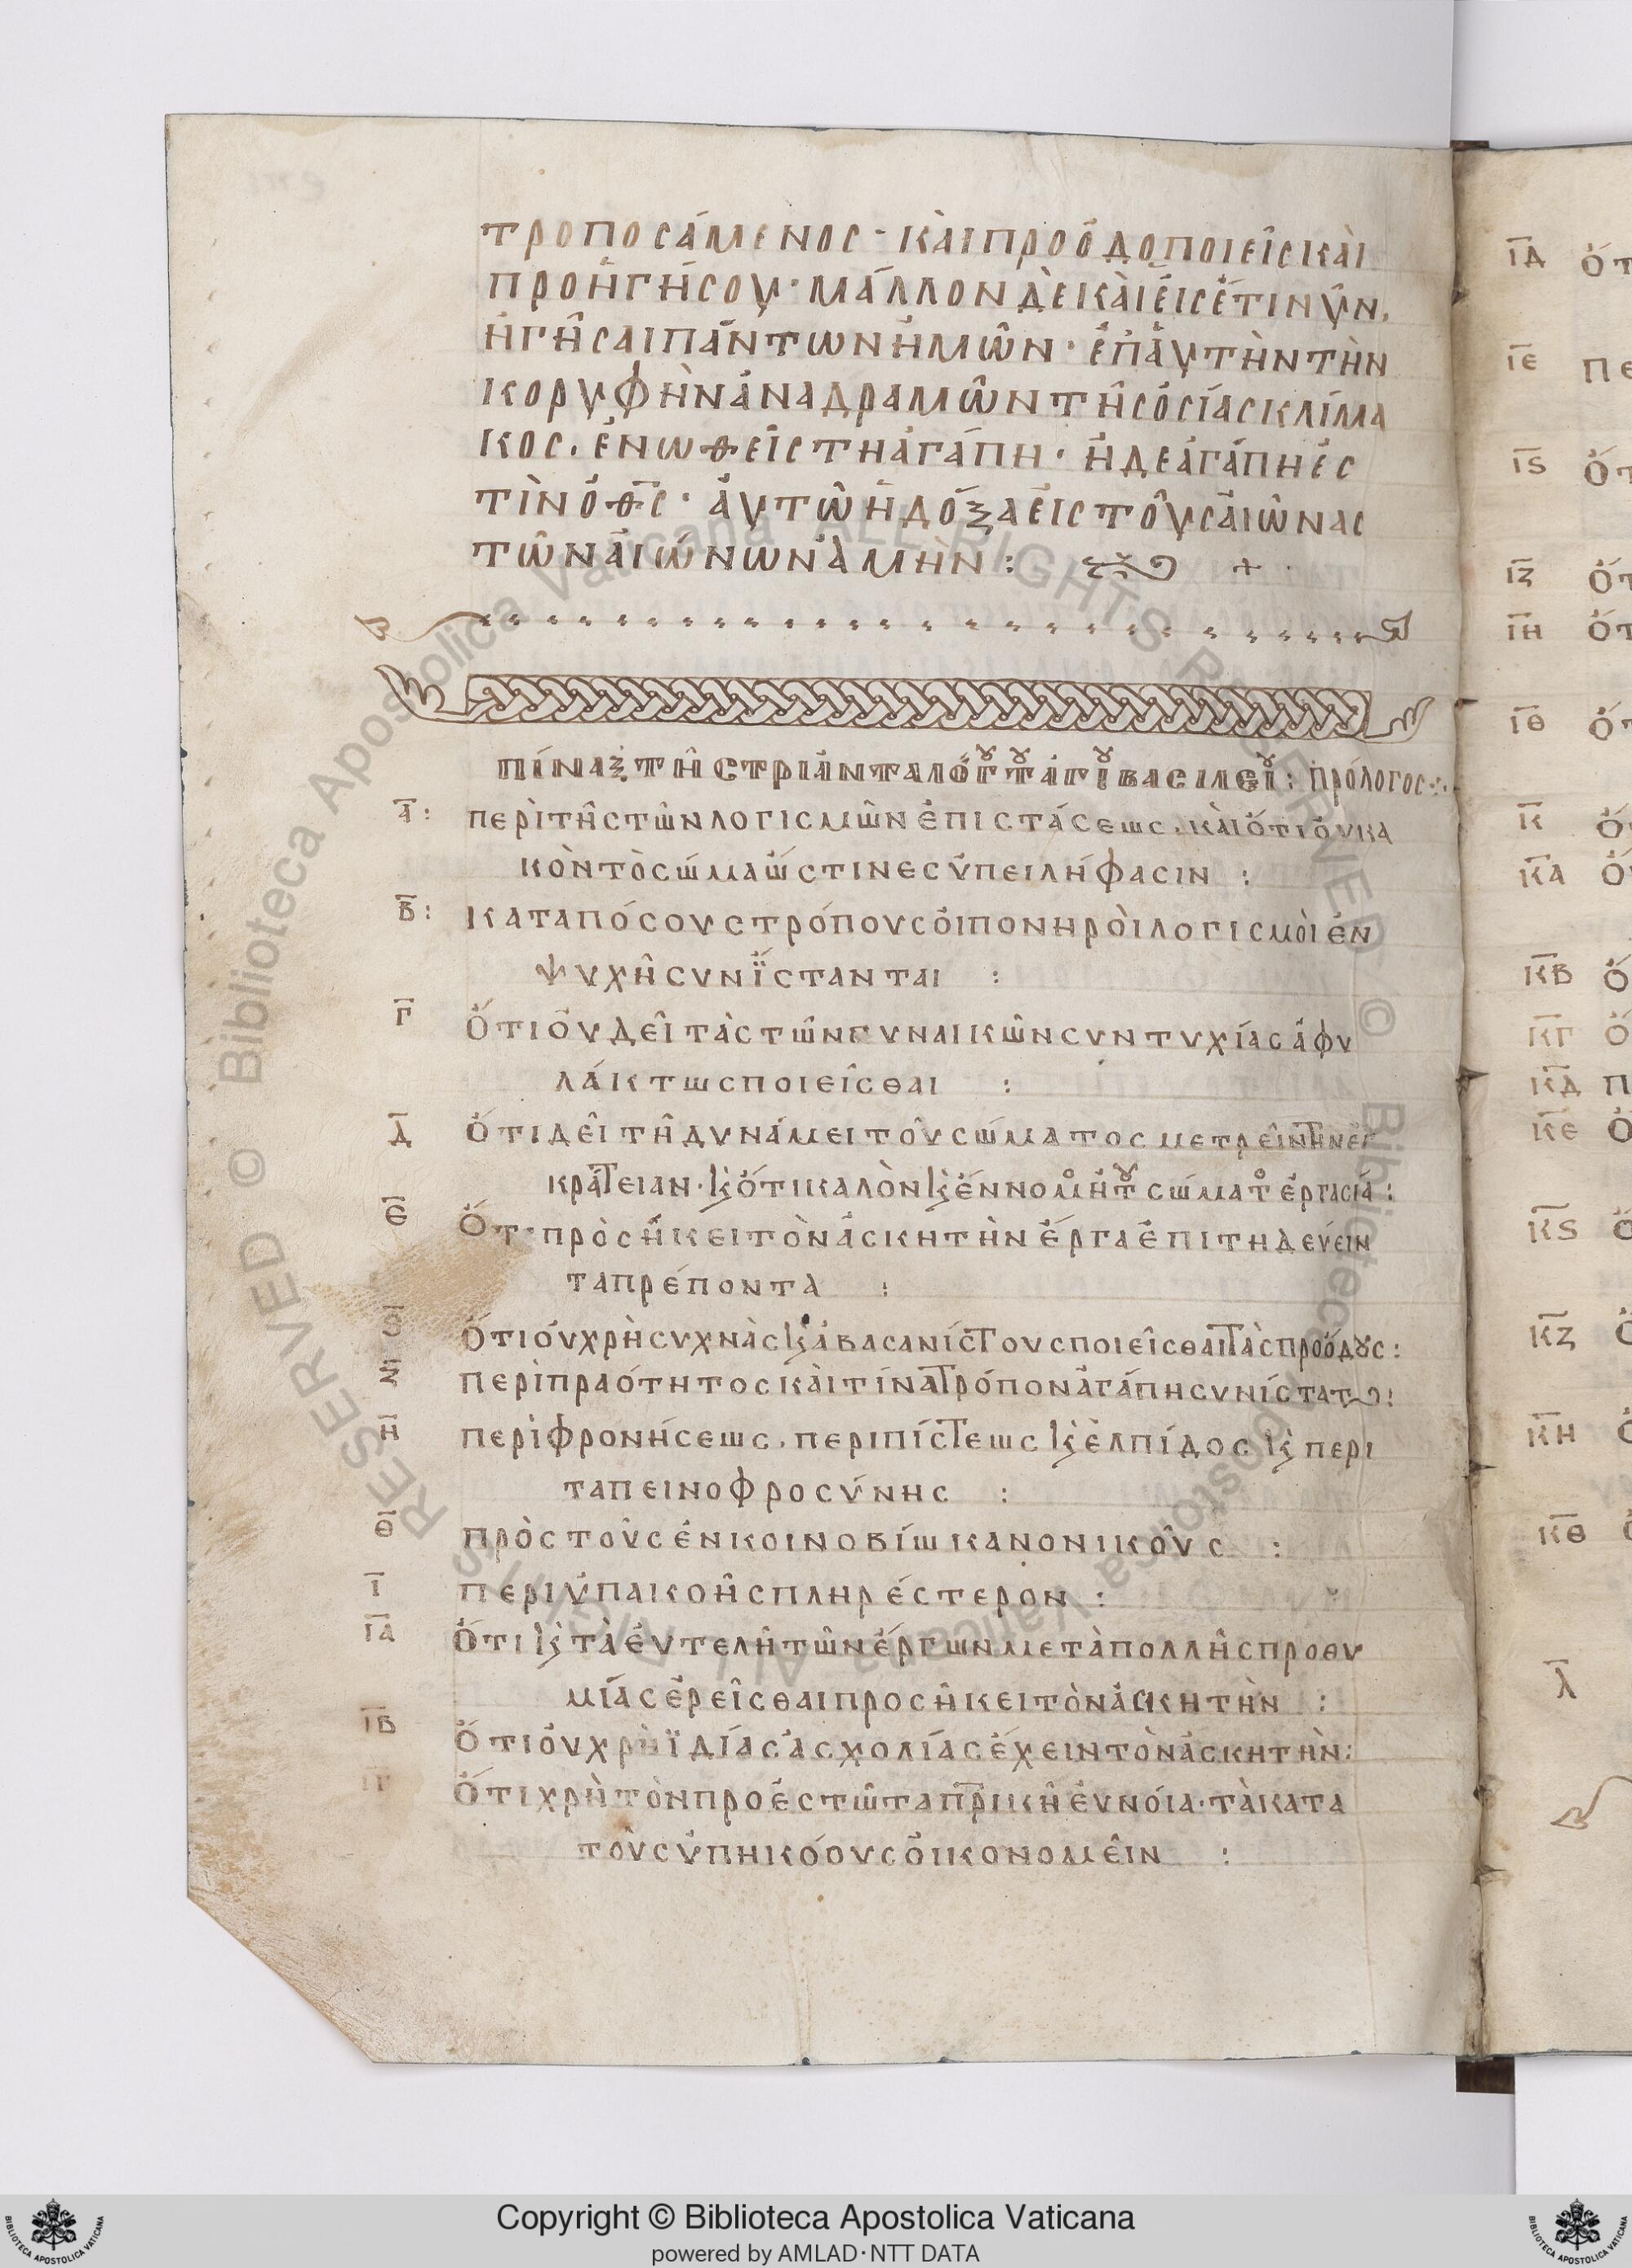 τροποσάμενος · καὶ προόδοποιεῖς καὶ
προηγήσου · μάλλον δὲ καὶ εἰσέτι νῦν,
ἡγῆσαι πάντων ἡμῶν · ἐπ᾽ αὐτὴν τὴν
κορυφὴν ἀναδραμῶν τῆς ὁσίας κλίμα
κος, ἑνωθεὶς τη ἀγάπη · ἡ δε ἀγάπη ἐσ
τὶν ὁ θ̅ς · ἀυτῶ ἡ δόξα εἰς τοὺς αἰῶνας
τῶν αἰώνων ἀμὴν : +
πίναξ τῆς τριάντα λόγ τ ἁγί βασιλεί : πρόλογος :·
α̅ : περὶ τῆς τῶν λογισμῶν ἐπιστάσεως, καὶ ὅτι οὐ κα
κὸν τὸ σώμα ὥς τινες ὑπειλήφασιν :
β̅ : κατα πόσους τρόπους οἱ πονηροὶ λογισμοὶ ἐν
ψυχῆ συνίστανται :
γ̅ ὅτι οὐ δεῖ τὰς τῶν γυναικῶν συντυχίας ἀφυ
λάκτως ποιεῖσθαι :
δ̅ ὅτι δεῖ τῆ δυνάμει τοῦ σώματος μετρεῖν τὴν ἐγ
κράτειαν · ϗ ὅτι καλὸν ϗ ἔννομ ἡ τ σώματ ἐργασία :
ε̅ ὅτι προσήκει τὸν ἀσκητὴν ἔργα ἐπιτηδεύειν
τα πρέποντα :
ὅτι οὐ χρὴ συχνὰς ϗ ἀβασανίστους ποιεῖσθαι τὰς προόδους :
ζ̅ περὶ πραότητος καὶ τίνα τρόπον ἀγάπη συνίσταται :
η̅ περὶ φρονήσεως, περι πίστεως ϗ ἐλπίδος ϗ περι
ταπεινοφροσύνης :
θ̅ πρὸς τοὺς ἐν κοινοβίω κανονικοὺς :
ι̅ περι ὑπαικοῆς πληρέστερον :
ι̅α̅ ὅτι ϗ τὰ ἐυτελῆ τῶν ἔργων μετὰ πολλῆς προθυ
μίας ἐρεῖσθαι προσήκει τὸν ἀσκητὴν :
ι̅β̅ ὅτι οὐ χρὴ ϊδίας ἀσχολίας ἔχειν τὸν ἀσκητὴν :
ι̅γ̅ ὅτι χρὴ τὸν προεστῶτα π̅ρικῆ ἐυνοία · τὰ κατα
τοὺς ὑπηκόους οἰκονομεῖν :
ι̅δ̅ ὅτ
ι̅ε̅ πε
ι̅ς̅ ὅτ
ι̅ζ̅ ὅτ
ι̅η̅ ὅτ
ι̅θ̅ ὅτ
κ̅
κ̅α̅
κ̅β̅
κ̅γ̅
κ̅δ̅ π
κ̅ε̅
κ̅ς̅
κ̅ζ̅
κ̅η̅
κ̅θ̅
λ̅
Copyright © Biblioteca Apostolica Vaticana
powered by AMLAD·NTT DATA